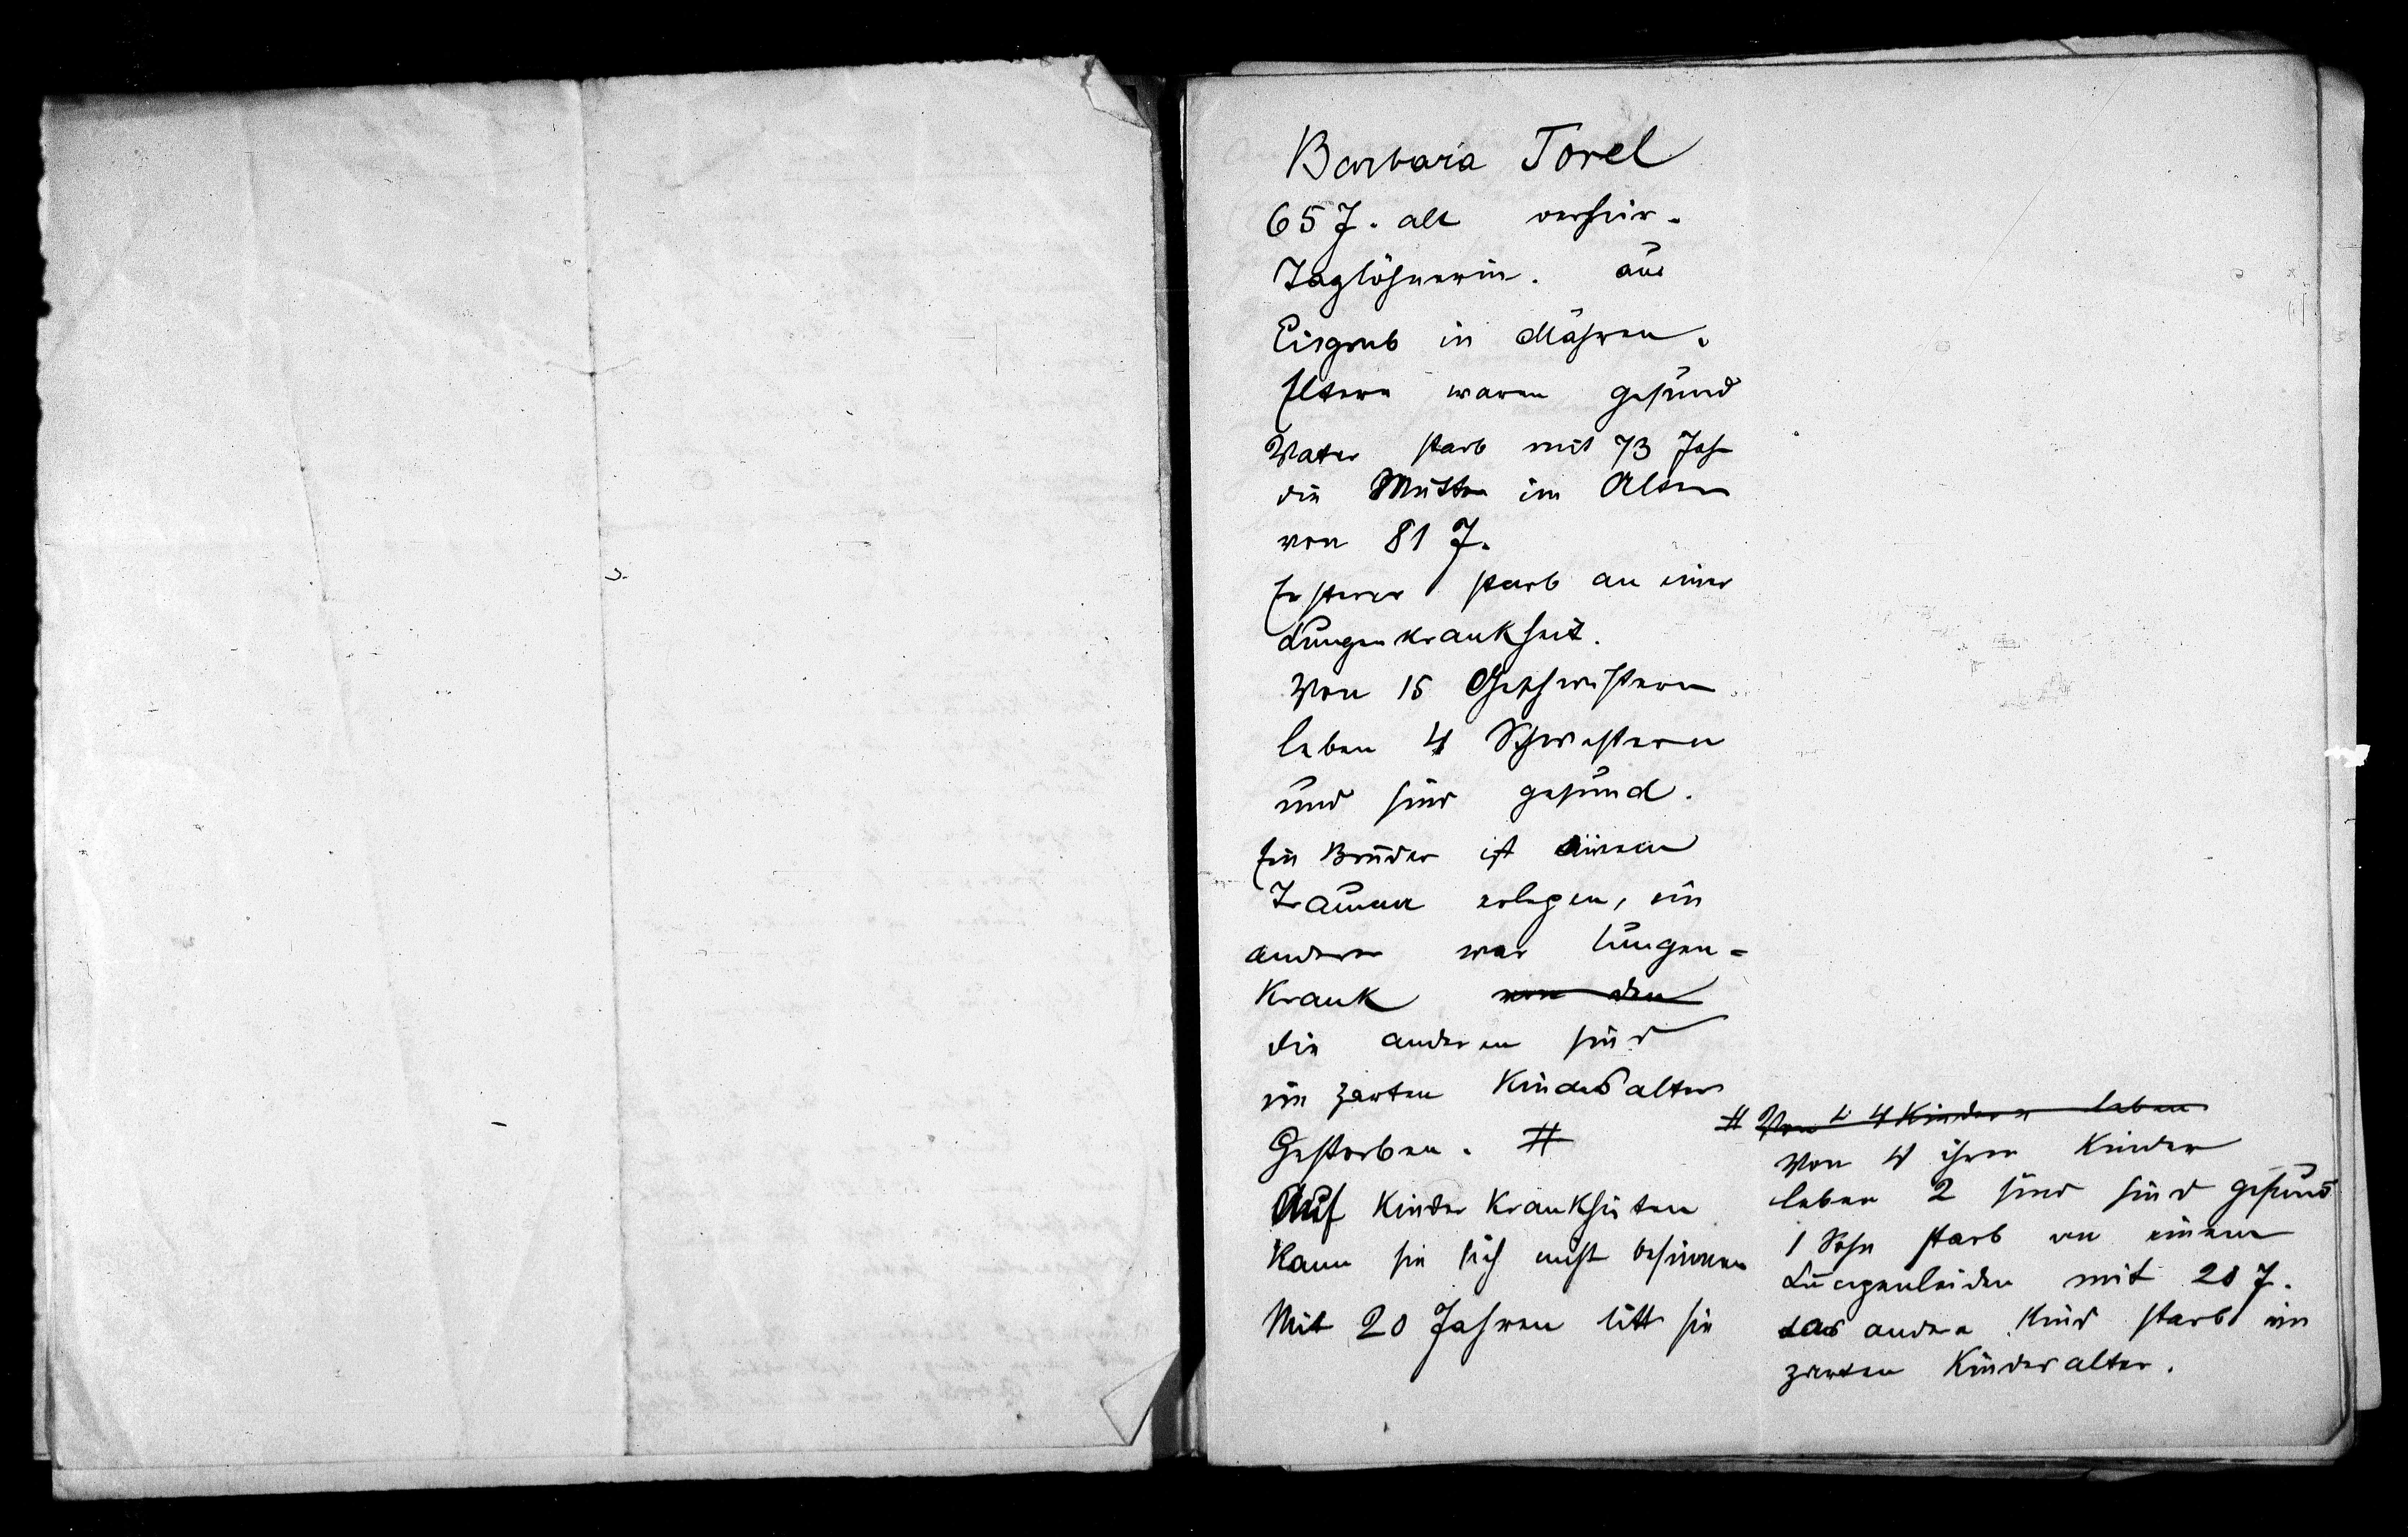 Barbara Torel
65 J. alt verheir.
Taglöhnerin. aus
Eisgrub in Mähren.
Eltern waren gesund
Vater starb mit 73 Jah
die Mutter im Alter
von 81 J.
Ersterer starb an einer
Lungenkrankheit.
Von 15 Geschwistern
leben 4 Schwestern
und sind gesund.
Ein Bruder ist einem
Trauma erlegen, ein
anderer war lungen=
krank von den
die anderen sind
im zarten Kindesalter
Gestorben. #
Auf Kinderkrankheiten
kann sie sich nicht besinnen
Mit 20 Jahren litt sie
# Von 4 Kindern leben
Von 4 ihren Kinder
leben 2 und sind gesund
1 Sohn starb an einem
Lungenleiden mit 28 J.
das andere Kind starb im
zarten Kindesalter.